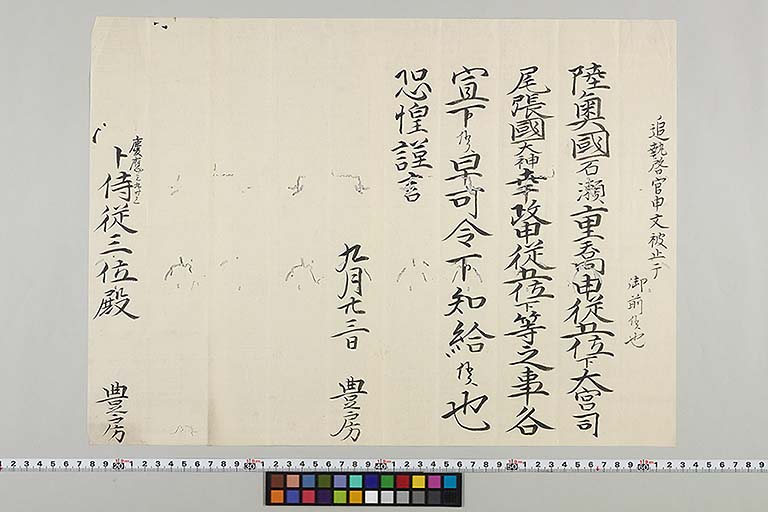 追執啓官申文被止于
御前候也
陸奥國石瀬重喬申従五位下大宮司
尾張國大神幸政申従五位下等之事各
宣下候早可令下知給候也
恐惶謹言
九月廿三日 豊房
慶應三九廿三
卜侍従三位殿 豊房